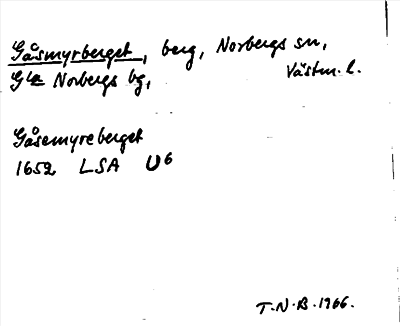 Gåsmyrberget, berg, Norbergs sn,
Gla Norbergs bg, Västm. l.
Gåsemyreberget
1652 LSA U6
T.N.B. 1966.